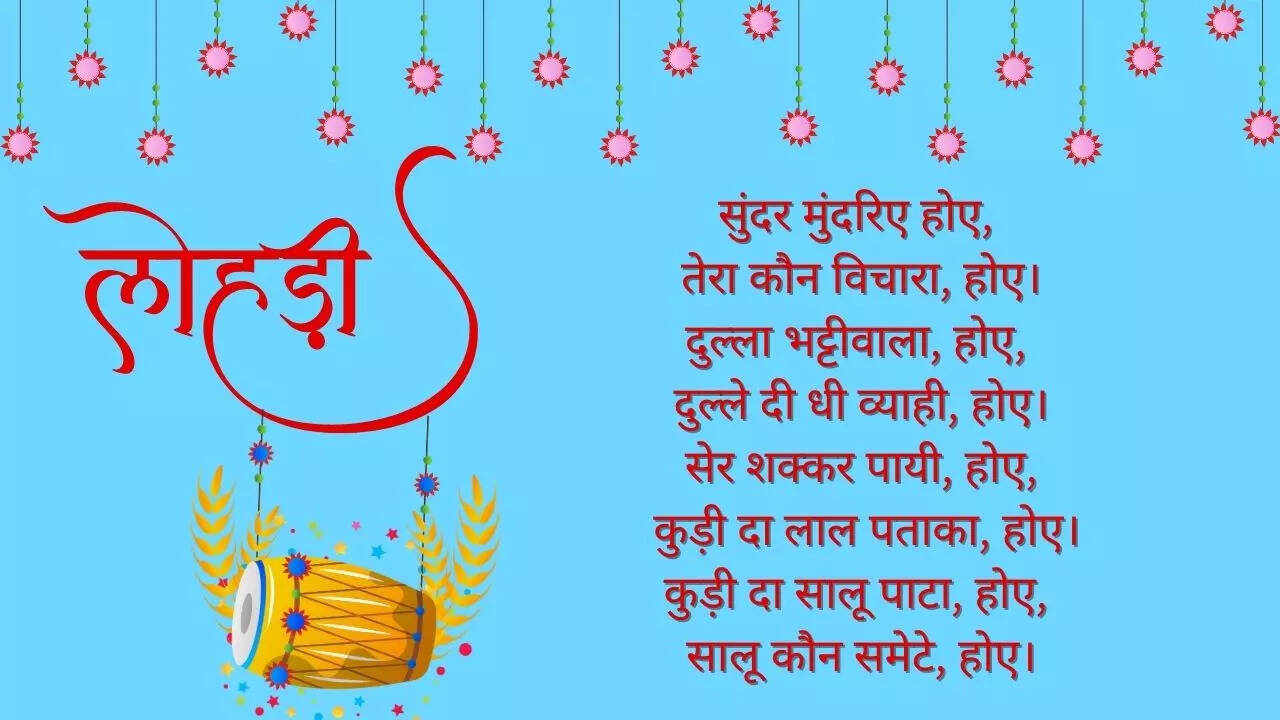 लोहड़ी
सुंदर मुंदरिए होए,
तेरा कौन विचारा, होए।
दुल्ला भट्टीवाला, होए,
दुल्ले दी धी व्याही, होए।
सेर शक्कर पायी, होए,
कुड़ी दा लाल पताका, होए।
कुड़ी दा सालू पाटा, होए,
सालू कौन समेटे, होए।